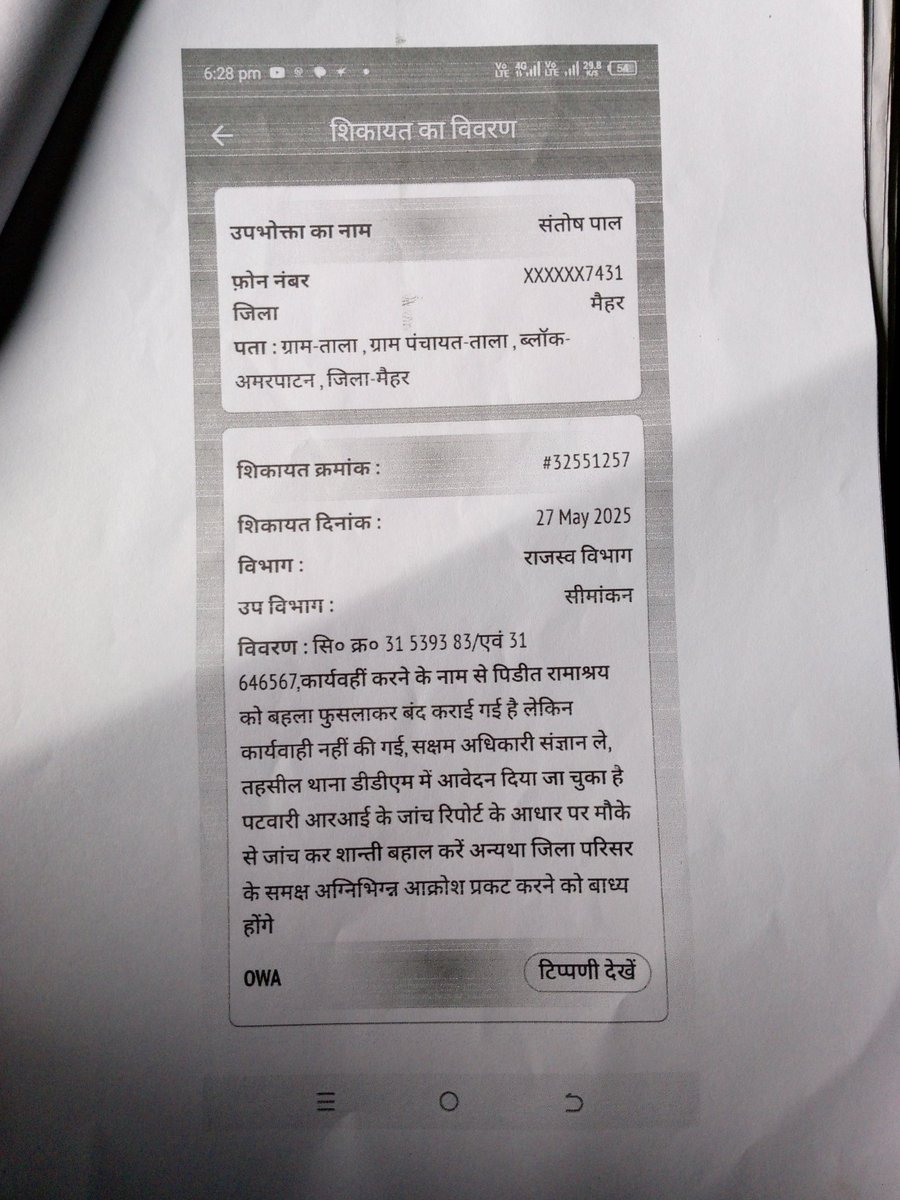 6:28 pm
Vo LTE 4G Vo LTE 29.8 K/s 54
शिकायत का विवरण
उपभोक्ता का नाम संतोष पाल
फ़ोन नंबर XXXXXX7431
जिला मैहर
पता : ग्राम-ताला , ग्राम पंचायत-ताला , ब्लॉक-
अमरपाटन , जिला-मैहर
शिकायत क्रमांक : #32551257
शिकायत दिनांक : 27 May 2025
विभाग : राजस्व विभाग
उप विभाग : सीमांकन
विवरण : सि० क्र० 31 5393 83/एवं 31
646567,कार्यवहीं करने के नाम से पिडीत रामाश्रय
को बहला फुसलाकर बंद कराई गई है लेकिन
कार्यवाही नहीं की गई, सक्षम अधिकारी संज्ञान ले,
तहसील थाना डीडीएम में आवेदन दिया जा चुका है
पटवारी आरआई के जांच रिपोर्ट के आधार पर मौके
से जांच कर शान्ती बहाल करें अन्यथा जिला परिसर
के समक्ष अग्निभिग्न्न आक्रोश प्रकट करने को बाध्य
होंगे
OWA टिप्पणी देखें